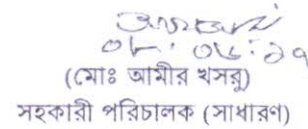 ০৮.০৬.১৭
(মোঃ আমীর খসরু)
সহকারী পরিচালক (সাধারণ)